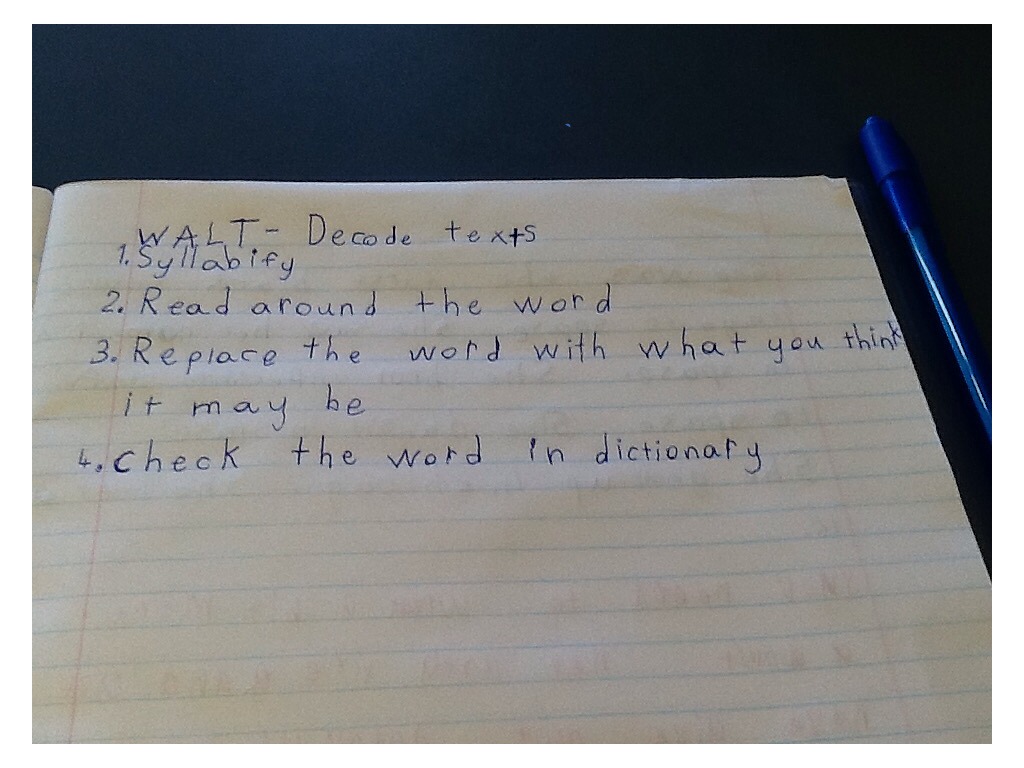 WALT- Decode texts
1. Syllabify
2. Read around the word
3. Replace the word with what you think
it may be
4. check the word in dictionary